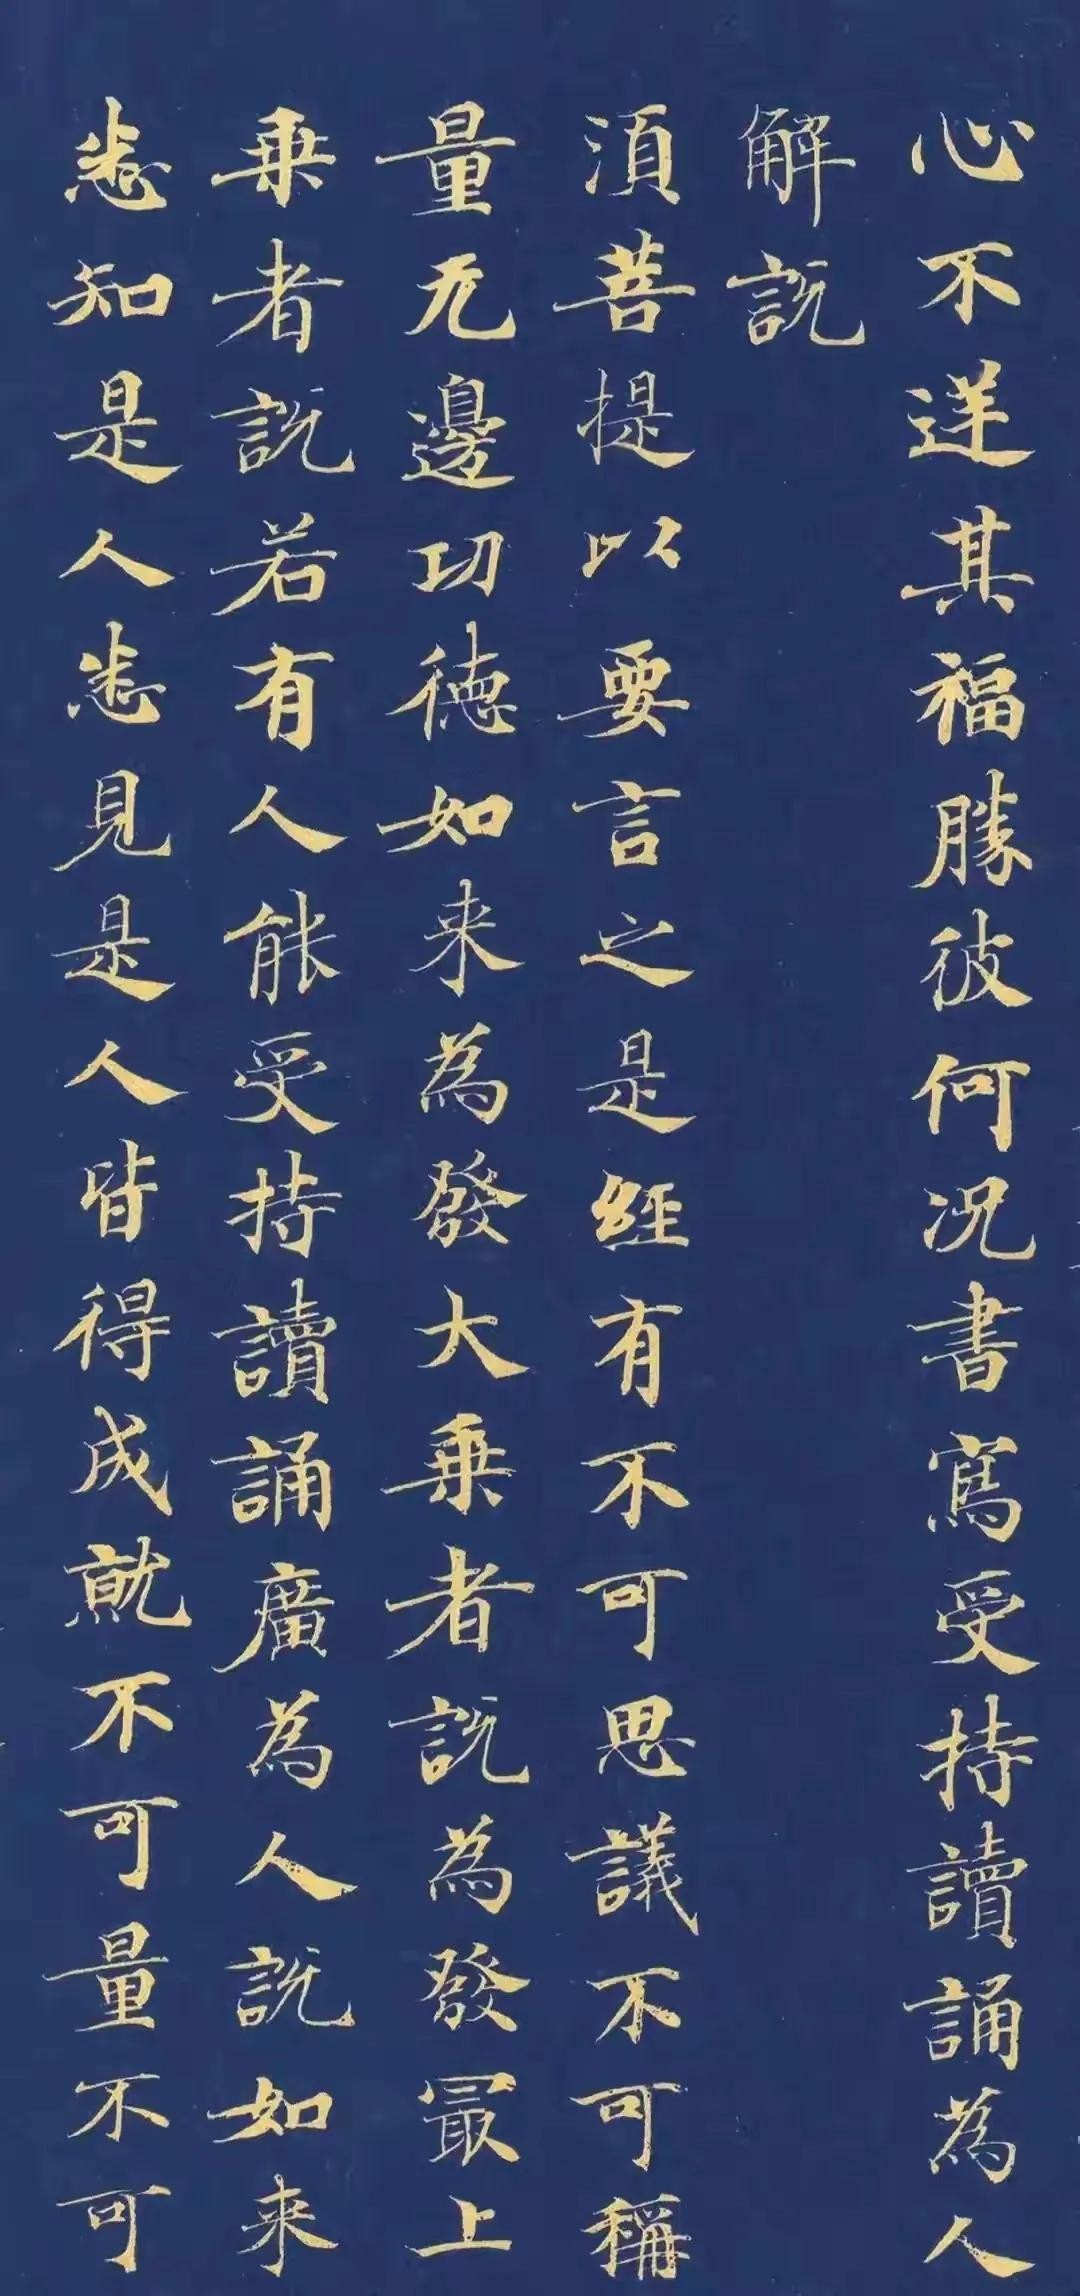 心不逆其福勝彼何況書寫受持讀誦為人
解說
須菩提以要言之是經有不可思議不可稱
量无邊功德如来為發大乗者說為發最上
乗者說若有人能受持讀誦廣為人說如来
悉知是人悉見是人皆得成就不可量不可